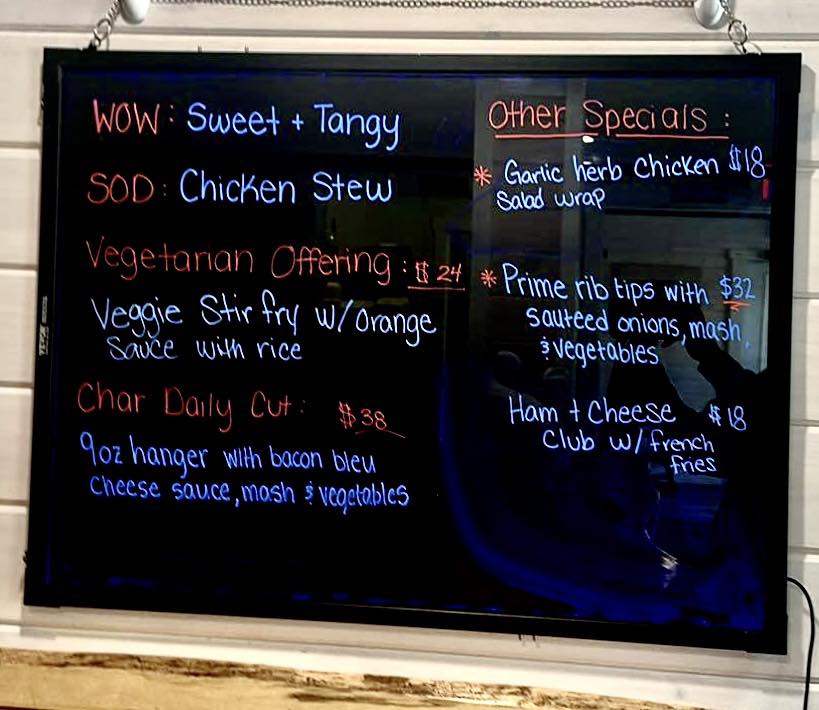 WOW: Sweet + Tangy
SOD: Chicken Stew
Vegetarian Offering: $24
Veggie Stir fry w/orange
sauce with rice
Char Daily Cut: $38
9oz hanger with bacon bleu
cheese sauce, mash & vegetables
Other Specials:
* Garlic herb Chicken $18
Salad wrap
* Prime rib tips with $32
sauteed onions, mash,
& vegetables
Ham + Cheese $18
Club w/ french
fries